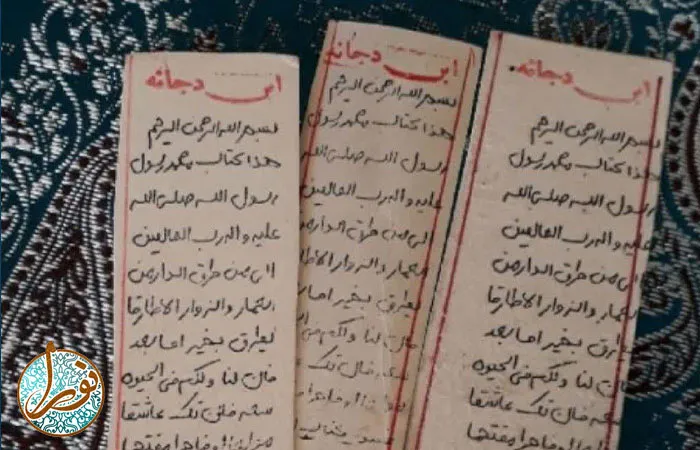 ابی دجانه
بسم الله الرحمن الرحیم
هذا کتاب محمد رسول
رسول الله صلی الله
علیه و اله رب العالمین
الی من طرق الدار من
العمار و الزوار الا طارقا
یطرق بخیر اما بعد
فان لنا و لکم فی الحیوه
سعه فان تک عاشقا
او فاجرا مقتحما
ابی دجانه
بسم الله الرحمن الرحیم
هذا کتاب محمد رسول
رسول الله صلی الله
علیه و اله رب العالمین
الی من طرق الدار من
العمار و الزوار الا
یطرق بخیر اما
فان لنا و لکم فی
سعه فان تک
او فاجرا
ابی دجانه
بسم الله الرحمن الرحیم
هذا کتاب محمد رسول
رسول الله صلی الله
علیه و اله رب العالمین
الی من طرق الدار من
العمار و الزوار الا طارقا
یطرق بخیر اما بعد
فان لنا و لکم فی الحیوه
سعه فان تک عاشقا